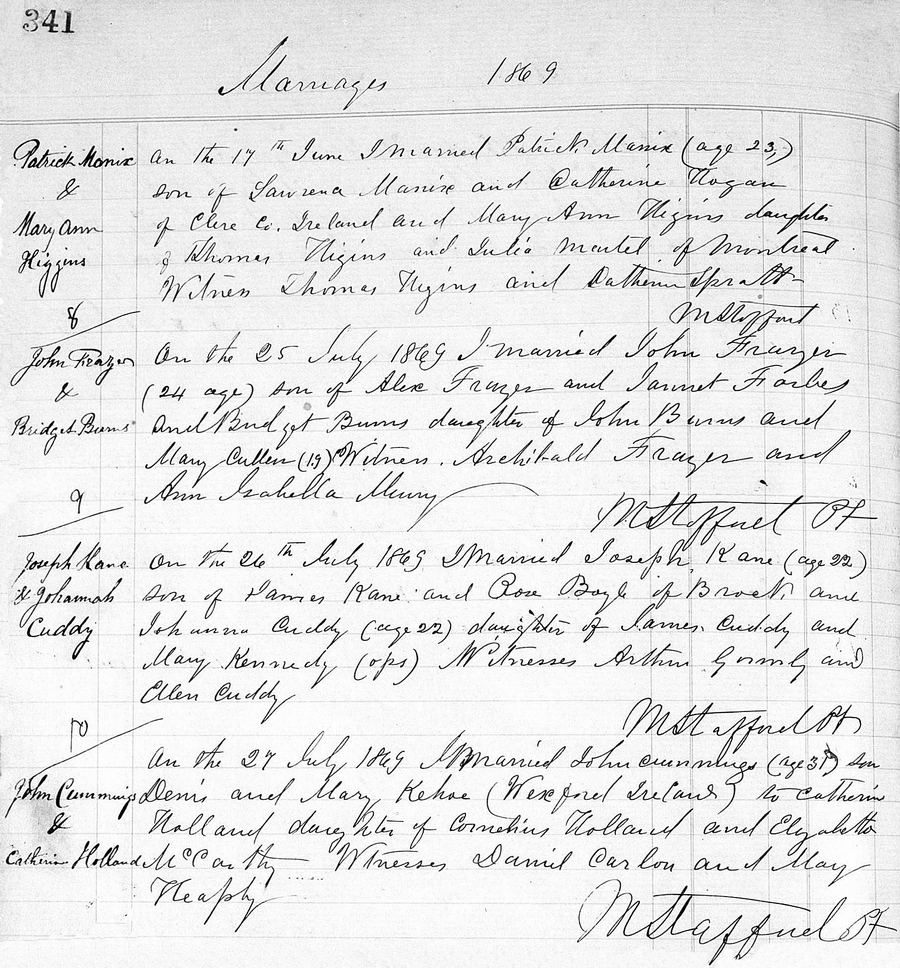 341
Marriages 1869
Patrick Manix
&
Mary Ann
Higgins
8
On the 17th June I married Patrick Manix (age 23,)
son of Lawrence Manix and Catherine Hogan
of Clere Co. Ireland and Mary Ann Higins daughter
of Thomas Higins and Julia Martel of Montreal.
Witness Thomas Higins and Catherin Spratt
M Stafford
John Frazer
&
Bridget Burns
9
On the 25 July 1869 I married John Frazer
(24 age) son of Alex Frazer and Jannet Forbes
and Bridget Burns daughter of John Burns and
Mary Cullen (19) Witness. Archibald Frazer and
Ann Isabella
M Stafford Pt
Joseph Kane
& Johannah
Cuddy
10
On the 26th July 1869 I married Joseph Kane (age 22)
son of James Kane and Rose Boyle of Brock and
Johanna Cuddy (age 22) daughter of James Cuddy and
Mary Kennedy (ops) Witnesses Arthur Gormly and
Ellen Cuddy
M Stafford Pt
John Cummings
&
Catherin Holland
On the 27 July 1869 I married John Cummings (age 31) son
Denis and Mary Kehoe (Wexford Ireland) to Catherin
Holland daughter of Cornelius Holland and Elyzabetto
McCarthy Witnesses Daniel Carlon and May
Heaphy
M Stafford Pt